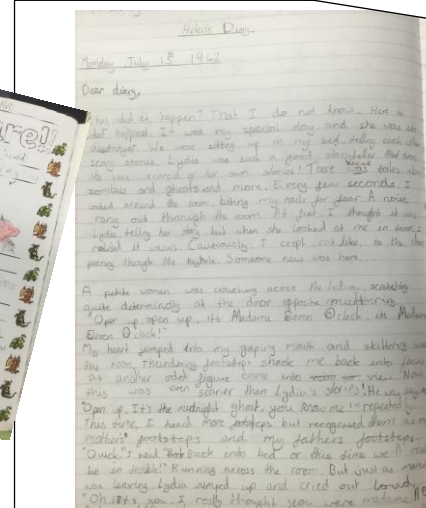 Helen's Diary
Monday July 15th 1942
Dear diary,
did it happen? That I do not know. Here is
what happened. It was my special day and she was the
destroyer. We were sitting up in my bed, telling each other
scary stories. Lydia was such a good storyteller that even
she was scared of her own stories! There was tales about
zombies and ghosts and more. Every few seconds I
looked around the room, biting my nails for fear. A noise
rang out through the room. At first I thought it was
Lydia telling her story, but when she looked at me in terror, I
realised it wasn't. Cautiously, I crept cat like, to the door,
peering through the keyhole. Someone new was here.
A petite woman was crouching across the landing, scratching
quite determinedly at the door opposite muttering
"Open up, open up, its Madame Eleven O'clock, its Madame
Eleven O'clock!"
My heart jumped into my gaping mouth and skittering
the room. Thundering footsteps shook me back into focus
as another odd figure came into view. Now
this was even scarier than Lydia's stories! He was saying
"Open up. It's the midnight ghost, you know me!" repeatedly
This time, I heard more footsteps but recognised them as my
mothers footsteps and my fathers footsteps.
"Quick," I said, "Back into bed, or this time we'll really
be in trouble!" Running across the room. But just as
was leaving, Lydia jumped up and cried out
"Oh it's you. I really thought you were madame